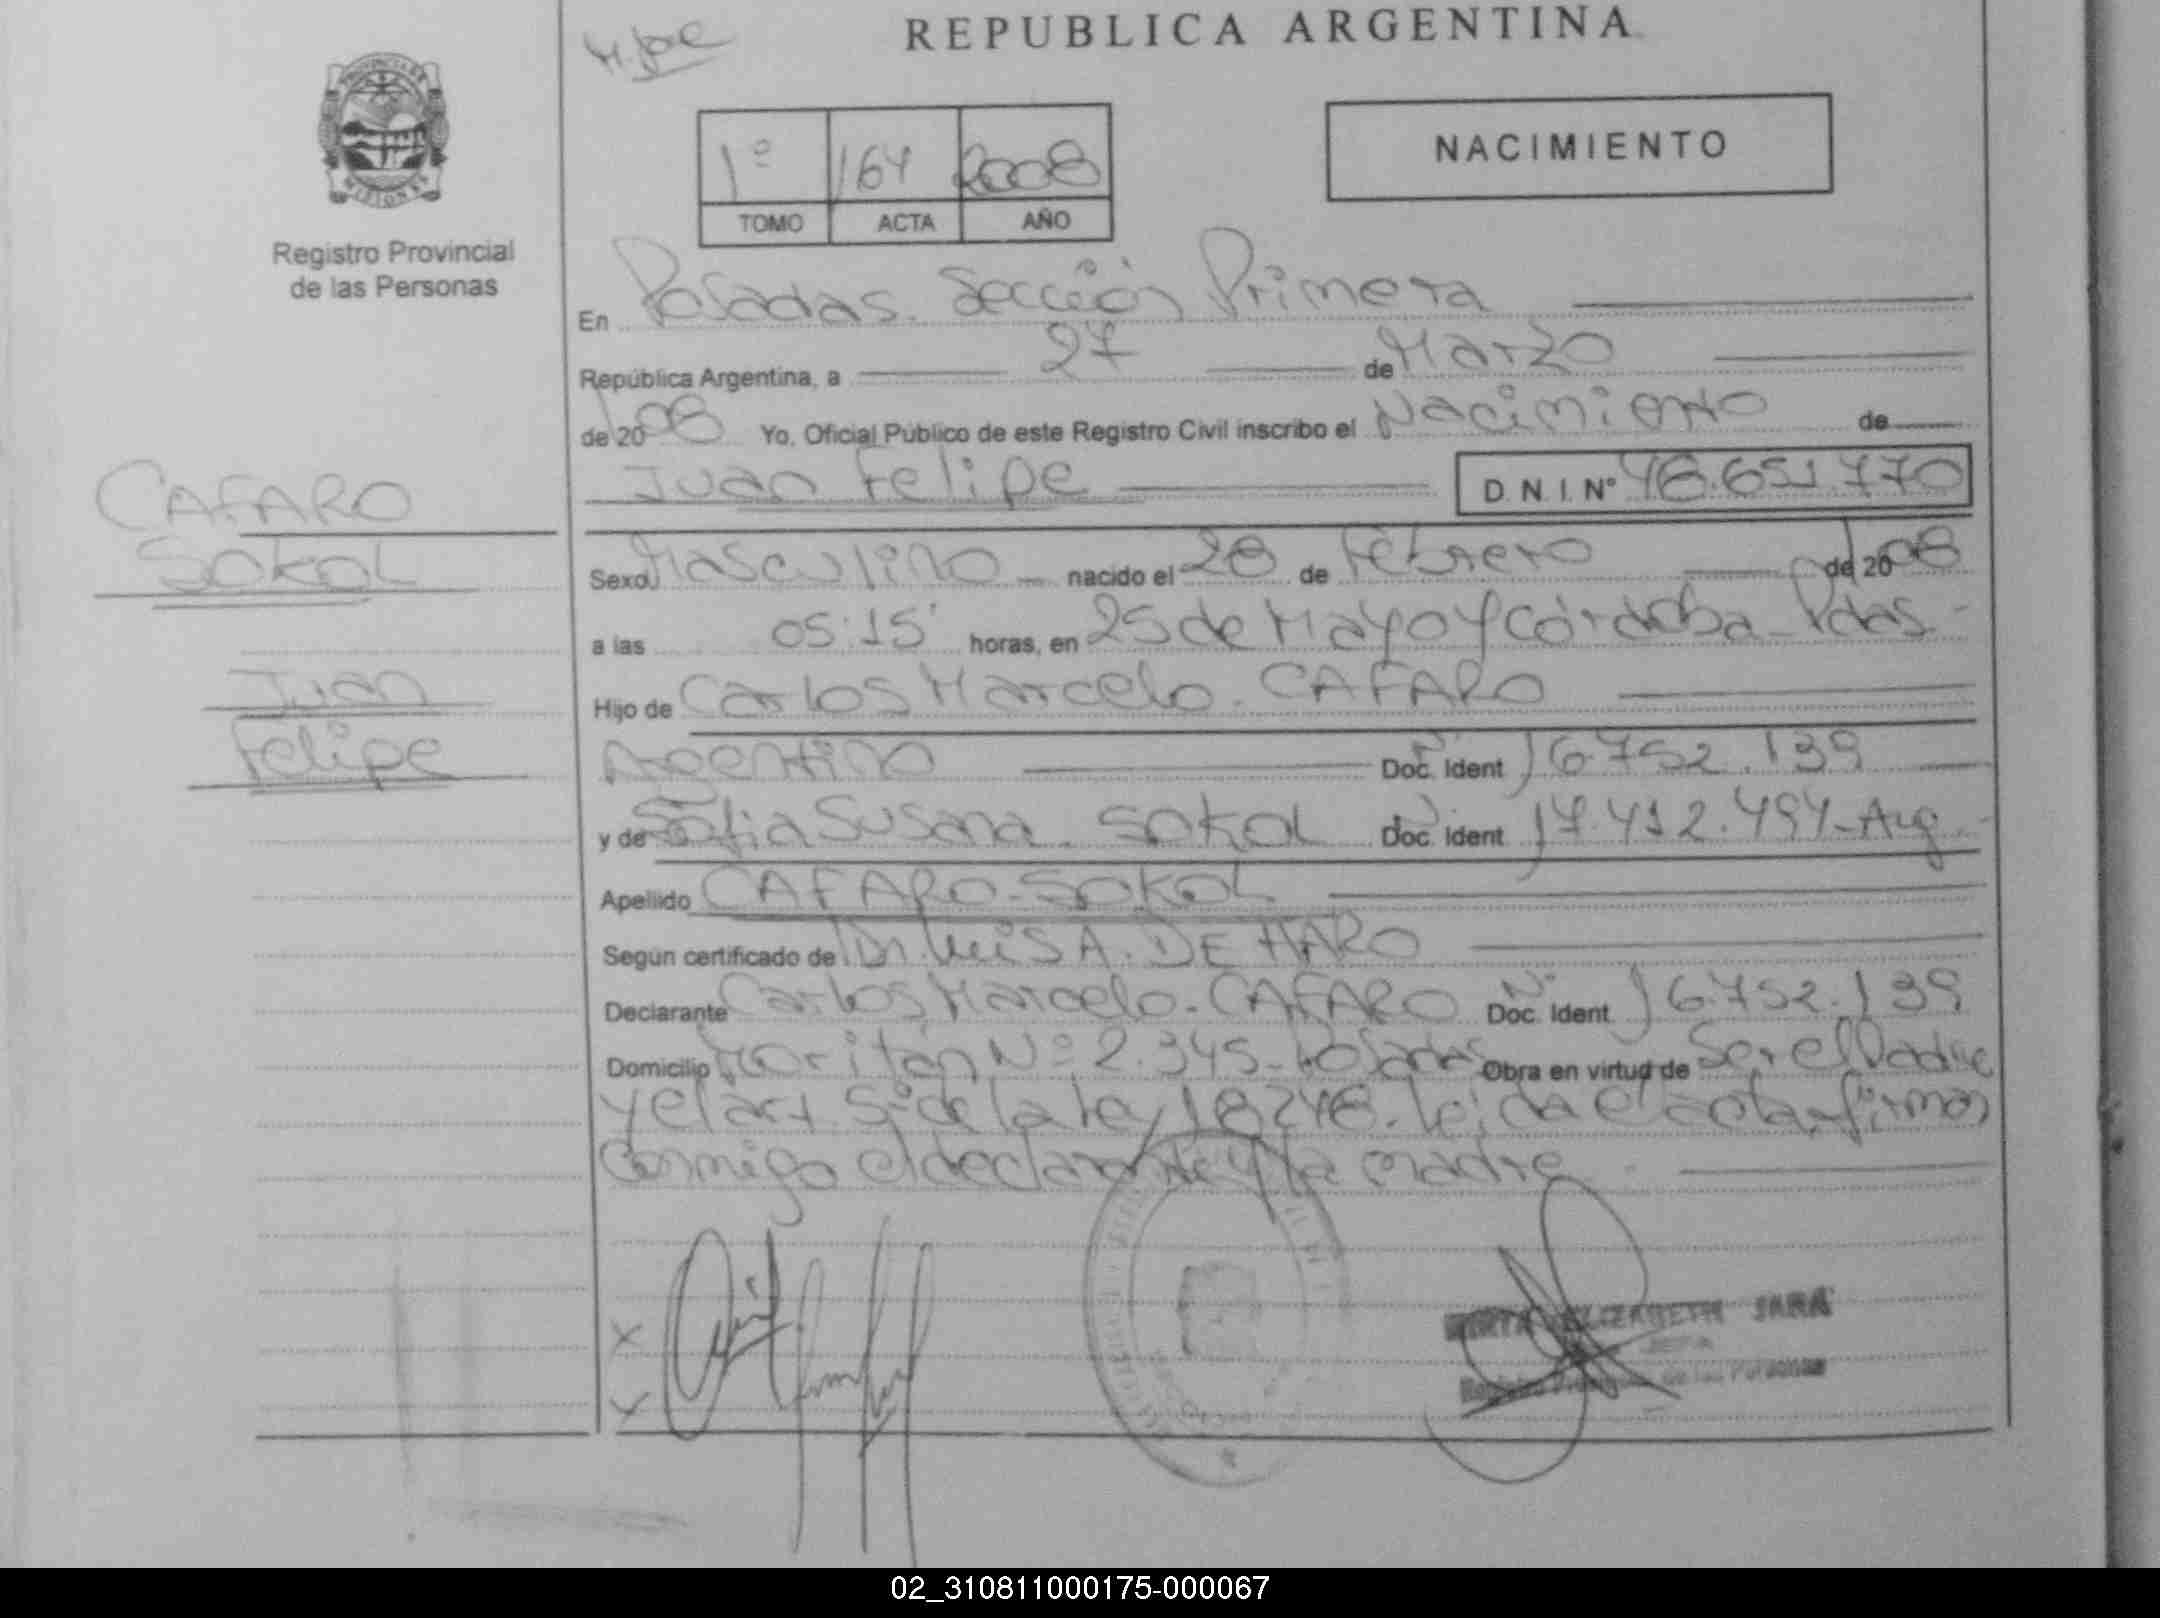 REPUBLICA ARGENTINA
PROVINCIA DE
MISIONES
Registro Provincial
de las Personas
1º 164 2008
TOMO ACTA AÑO
NACIMIENTO
En Posadas. Sección Primera
República Argentina, a 27 de Marzo
de 2008 Yo, Oficial Público de este Registro Civil inscribo el Nacimiento de
Juan Felipe D.N.I. Nº 48.651.770
CAFARO
SOKOL
Juan
Felipe
Sexo Masculino nacido el 28 de Febrero de 2008
a las 05:15' horas, en 25 de Mayo y Córdoba - Pdas. -
Hijo de Carlos Marcelo. CAFARO
Argentino Doc. Ident 16.752.139
y de Sofia Susana. SOKOL Doc. Ident 17.412.494 - Arg.
Apellido CAFARO - SOKOL
Según certificado de Dr. Luis A. DE HARO
Declarante Carlos Marcelo - CAFARO Doc. Ident 16.752.139
Domicilio Nº 2.345 - Posadas Obra en virtud de Ser el Padre
y el art. 5º de la Ley 18248. Leída el acta, firman
Conmigo el declarante y la madre
X
X
MIRTA ELIZABETH JARA
JEFA
Registro Provincial de las Personas
02_310811000175-000067